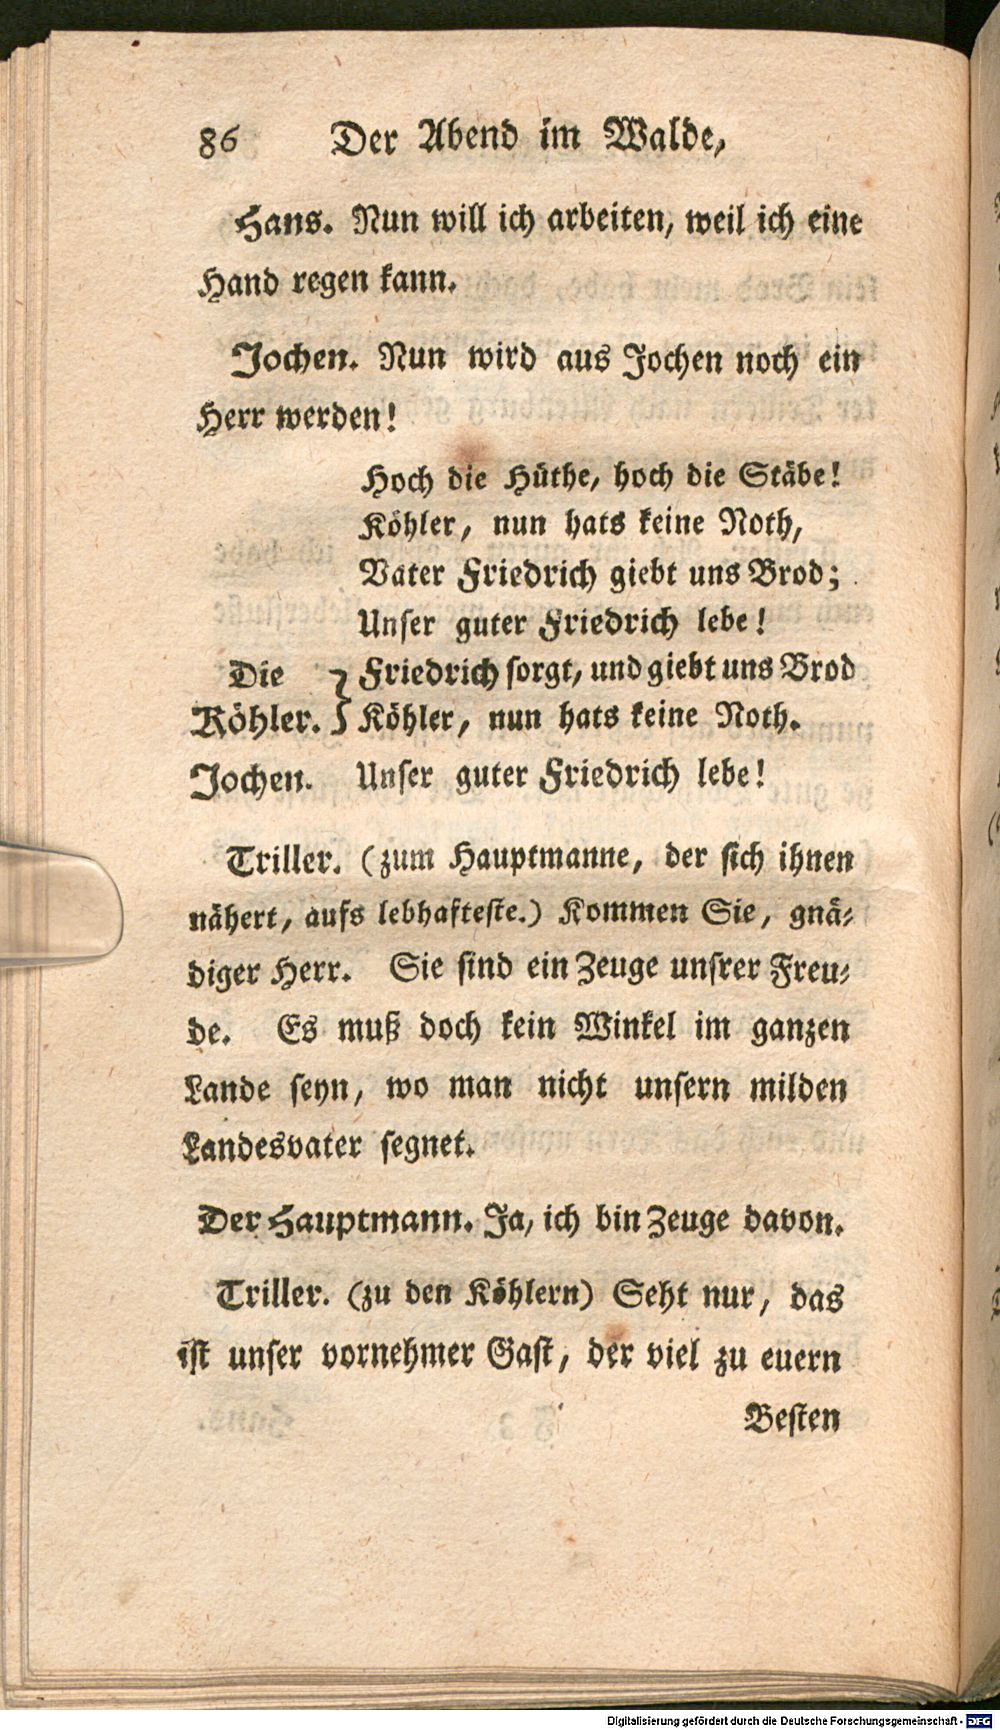 86 Der Abend im Walde,
Hans. Nun will ich arbeiten, weil ich eine
Hand regen kann.
Jochen. Nun wird aus Jochen noch ein
Herr werden!
Hoch die Hüthe, hoch die Stäbe!
Köhler, nun hats keine Noth,
Vater Friedrich giebt uns Brod;
Unser guter Friedrich lebe!
Die } Friedrich sorgt, und giebt uns Brod
Köhler. } Köhler, nun hats keine Noth.
Jochen. Unser guter Friedrich lebe!
Triller. (zum Hauptmanne, der sich ihnen
nähert, aufs lebhafteste.) Kommen Sie, gnä-
diger Herr. Sie sind ein Zeuge unsrer Freu-
de. Es muß doch kein Winkel im ganzen
Lande seyn, wo man nicht unsern milden
Landesvater segnet.
Der Hauptmann. Ja, ich bin Zeuge davon.
Triller. (zu den Köhlern) Seht nur, das
ist unser vornehmer Gast, der viel zu euern
Besten
Digitalisierung gefördert durch die Deutsche Forschungsgemeinschaft - DFG